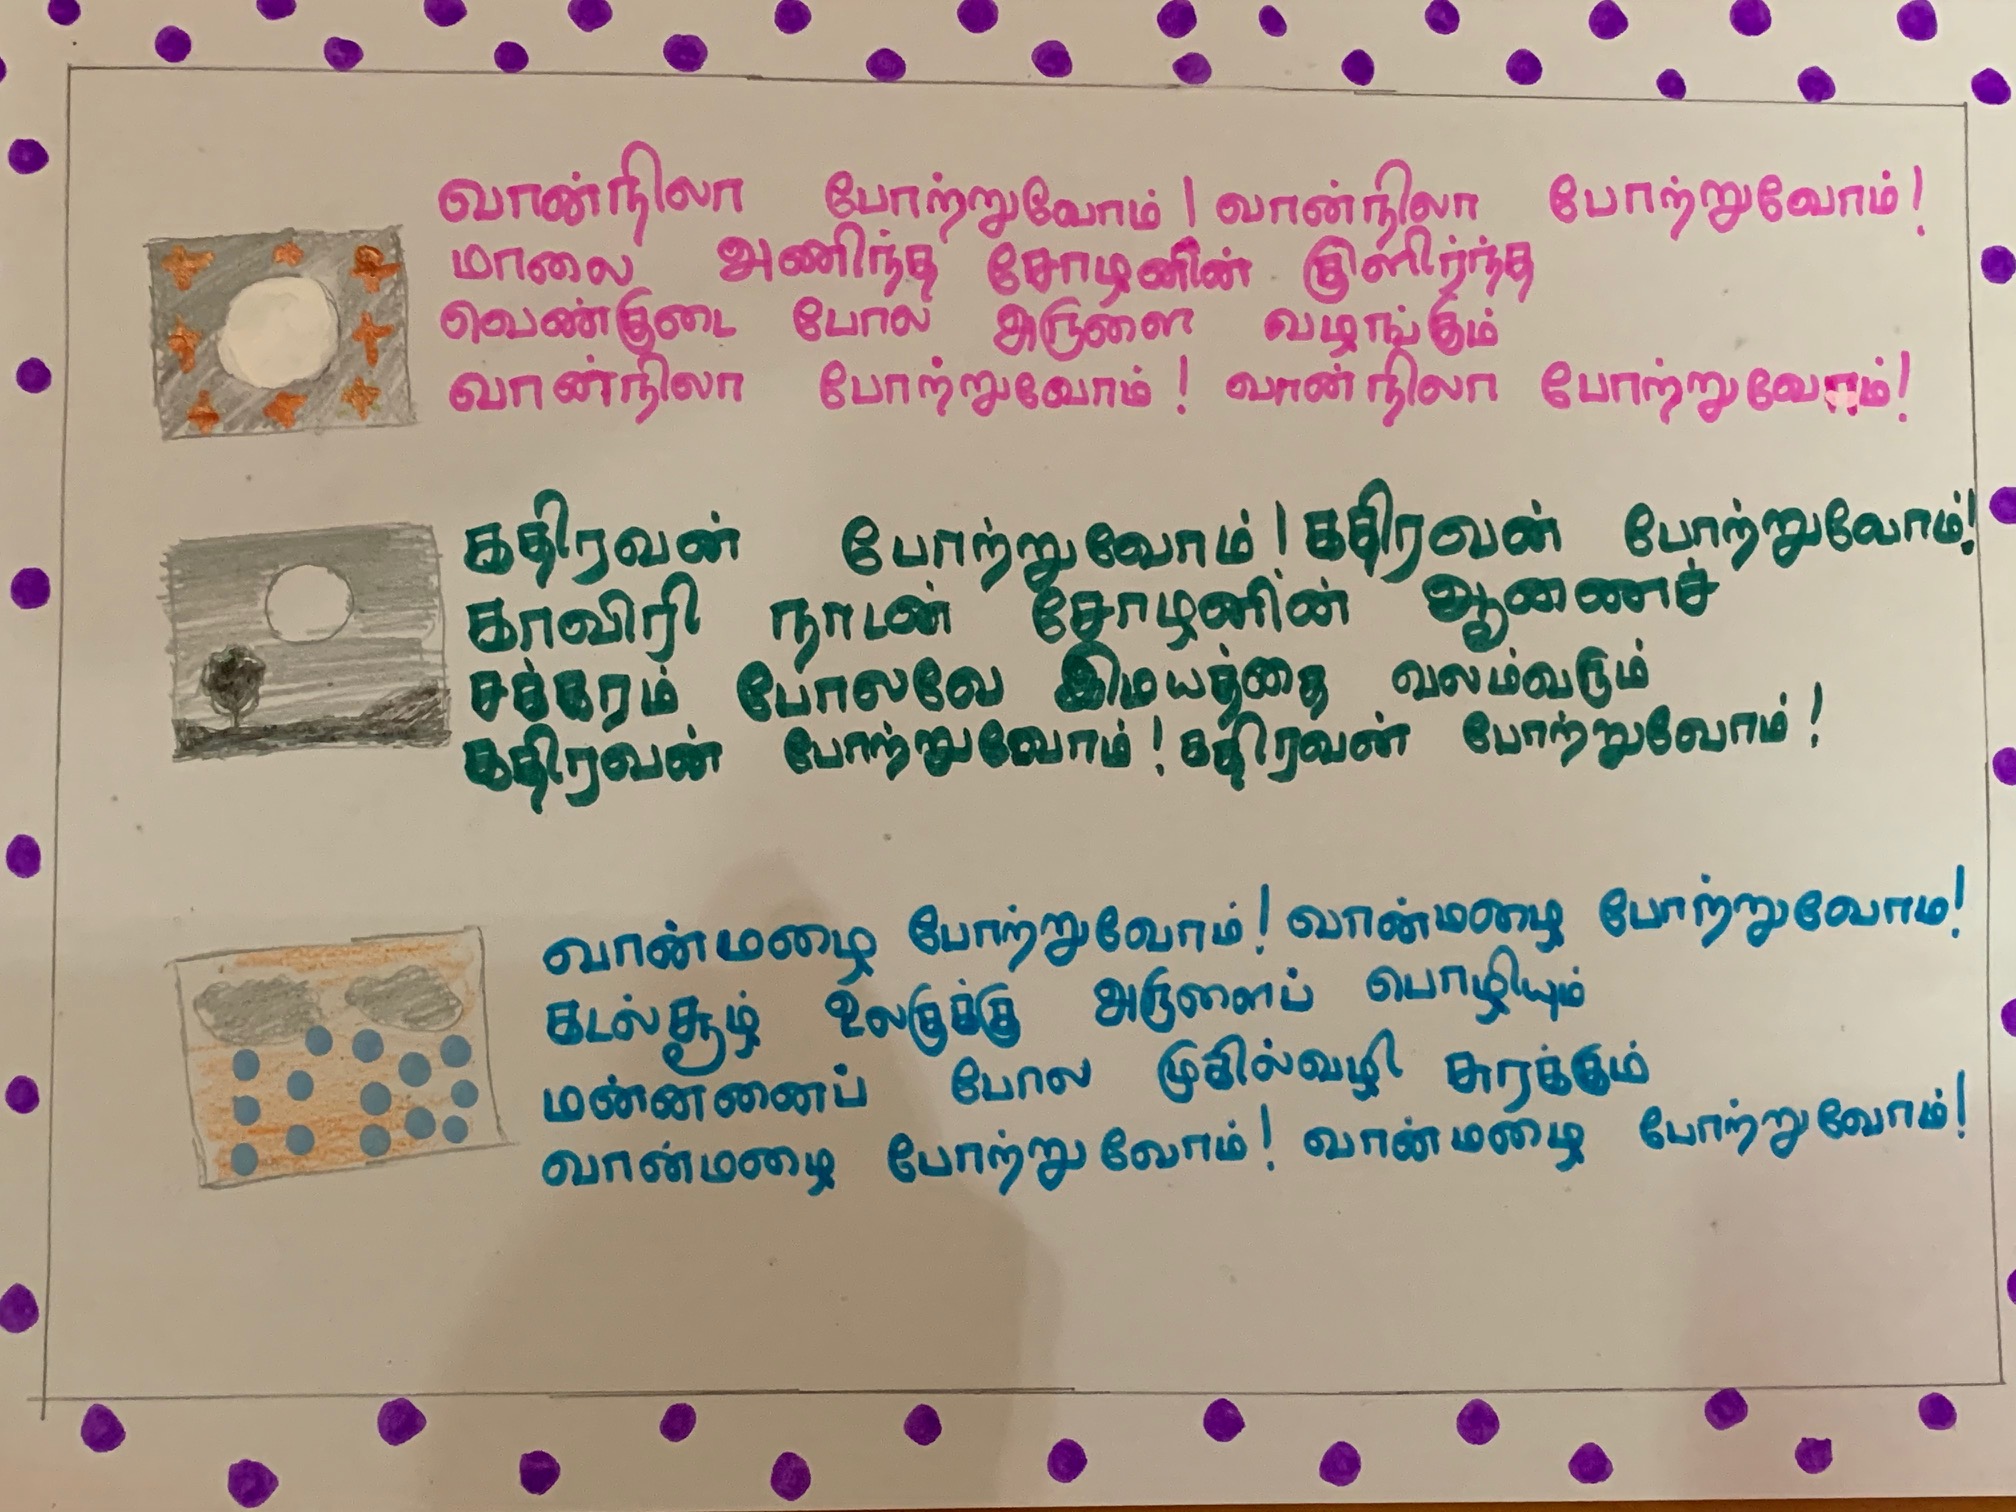 வான்நிலா போற்றுவோம்! வான்நிலா போற்றுவோம்!
மாலை அணிந்த சோழனின் குளிர்ந்த
வெண்குடை போல் அருளை வழங்கும்
வான்நிலா போற்றுவோம்! வான்நிலா போற்றுவோம்!
கதிரவன் போற்றுவோம்! கதிரவன் போற்றுவோம்!
காவிரி நாடன் சோழனின் ஆணைச்
சக்கரம் போலவே இமயத்தை வலம்வரும்
கதிரவன் போற்றுவோம்! கதிரவன் போற்றுவோம்!
வான்மழை போற்றுவோம்! வான்மழை போற்றுவோம!
கடல்சூழ் உலகுக்கு அருளைப் பொழியும்
மன்னனைப் போல முகில்வழி சுரக்கும்
வான்மழை போற்றுவோம்! வான்மழை போற்றுவோம்!